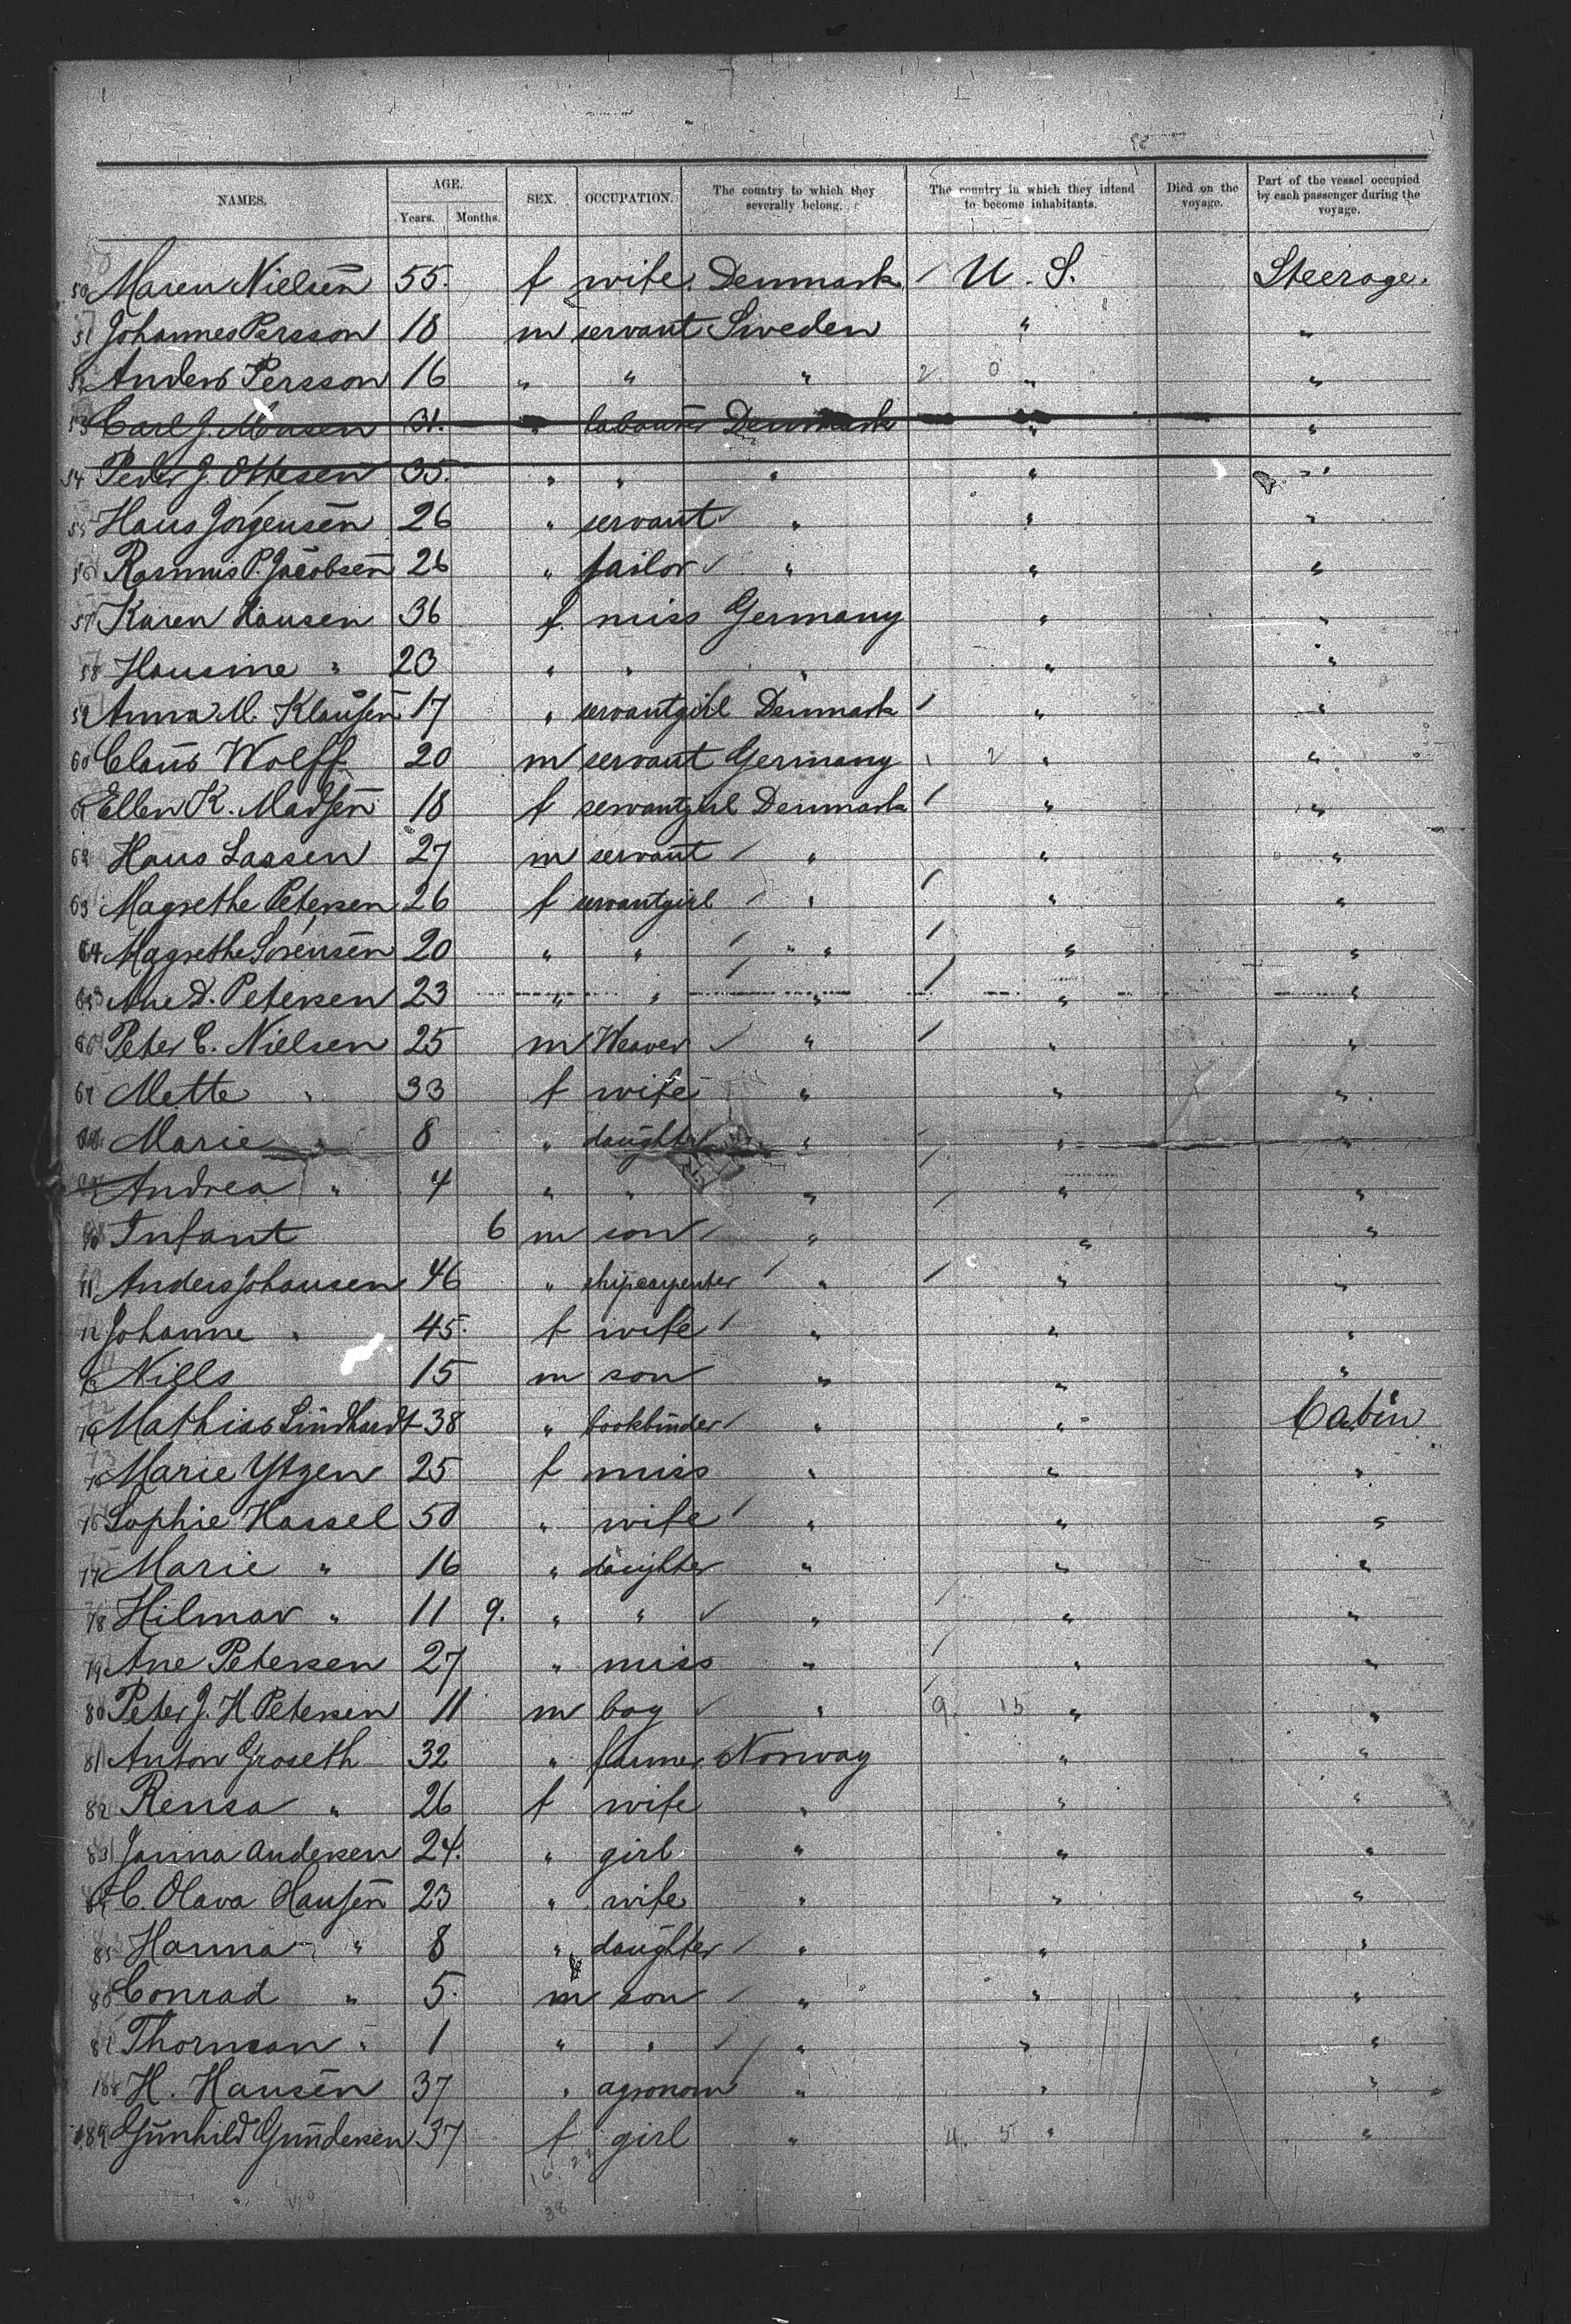 NAMES. AGE. Years. Months. SEX. OCCUPATION. The country to which they severally belong. The country in which they intend to become inhabitants. Died on the voyage. Part of the vessel occupied by each passenger during the voyage.
50 Maren Nielsen 55. f wife Denmark U. S. Steerage.
51 Johannes Persson 18 m servant Sweden " "
52 Anders Persson 16 " " " 2 0 " "
53 Carl J. 31. " labourer Denmark " "
54 Peder J. Ottesen 35. " " " " "
55 Hans Jörgensen 26 " servant " " "
56 Rasmus P. Jacobsen 26 " sailor " " "
57 Karen Hansen 36 f. miss Germany " "
58 Hansine " 23 " " " " "
59 Anna M. Klausen 17 " servantgirl Denmark " "
60 Claus Wolff 20 m servant Germany 2 " "
61 Ellen K. Madsen 18 f servantgirl Denmark " "
62 Hans Lassen 27 m servant " " "
63 Magrethe Petersen 26 f servantgirl " " "
64 Magrethe Sörensen 20 " " " " "
65 Ane D. Petersen 23 " " " " "
66 Peter C. Nielsen 25 m Weaver " " "
67 Mette " 33 f wife " " "
68 Marie " 8 " daughter " " "
69 Andrea " 4 " " " " "
70 Infant 6 m son " " "
71 Anders Johansen 46 " shipcarpenter " " "
72 Johanne " 45. f wife " " "
73 Nills 15 m son " " "
74 Mathias Lindhardt 38 " bookbinder " " Cabin
75 Marie Ytzen 25 f miss " " "
76 Sophie Hassel 50 " wife " " "
77 Marie " 16 " daughter " " "
78 Hilmar " 11 9. " " " " "
79 Ane Petersen 27 " miss " " "
80 Peter J. H Petersen 11 m boy " 9. 15 " "
81 Anton Groseth 32 " farmer Norway " "
82 Rensa " 26 f wife " " "
83 Janna Andersen 24. " girl " " "
84 C. Olava Hansen 23 " wife " " "
85 Hanna " 8 " daughter " " "
86 Conrad " 5. m son " " "
87 Thorman " 1 " " " " "
188 H. Hansen 37 " agronom " " "
189 Gunhild Gundersen 37 f girl " 4. 5 " "
38